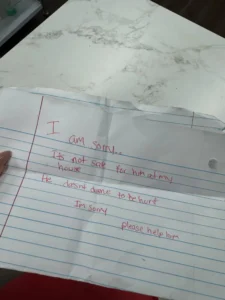 I
am sorry..
It's not safe for him at my
house
He doesn't deserve to be hurt
I'm sorry
please help him